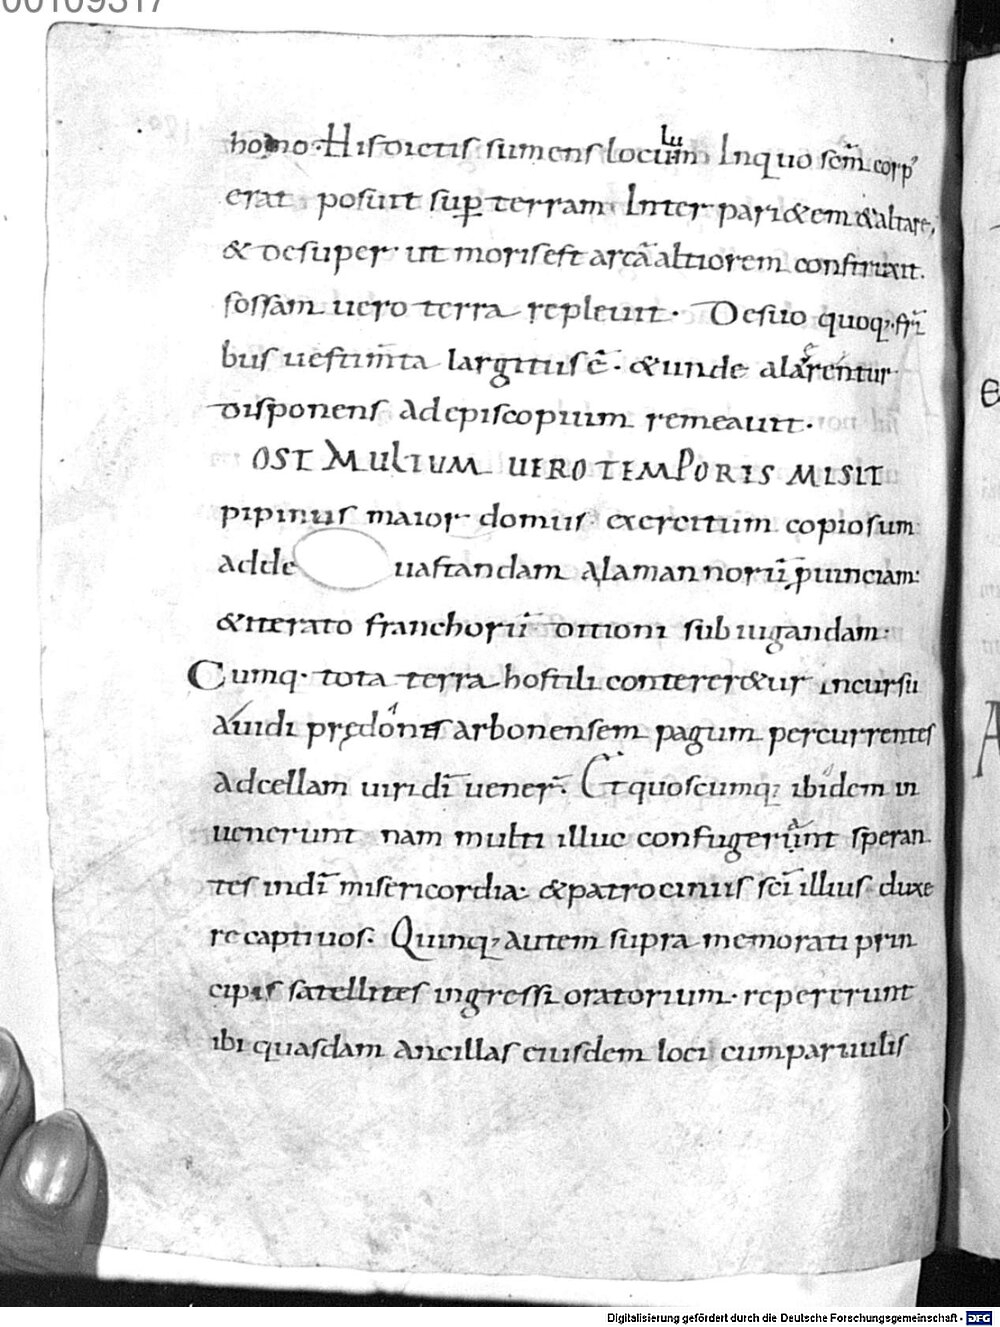 00109317
homo. Hisdictis sumens loculum Inquo scm̄ corp'
erat posuit sup̱ terram Inter pari&em &altare,
& desuper ut morisest arcā altiorem construxit.
fossam uero terra repleuit. Desuo quoq; fr̄i
bus uestim̄ta largitus ē. &unde alerentur
disponens adepiscopium remeauit.
OST MULTUM UERO TEMPORIS MISIT
pipinus maior domus exercitum copiosum
adde uastandam alamannorū p̱uinciam:
&iterato franchorū ditioni subiugandam:
Cumq. tota terra hostili conterer&ur incursu
auidi prędones arbonensem pagum percurrentes
adcellam uiri dī uener̄. Et quoscumq; ibidem in
uenerunt nam multi illuc confugerant speran
tes indī misericordia: &patrociniis scī illius duxe
re captiuos. Quinq; autem supra memorati prin
cipis satellites ingressi oratorium. repererunt
ibi quasdam ancillas eiusdem loci cumparuulis
Digitalisierung gefördert durch die Deutsche Forschungsgemeinschaft - DFG